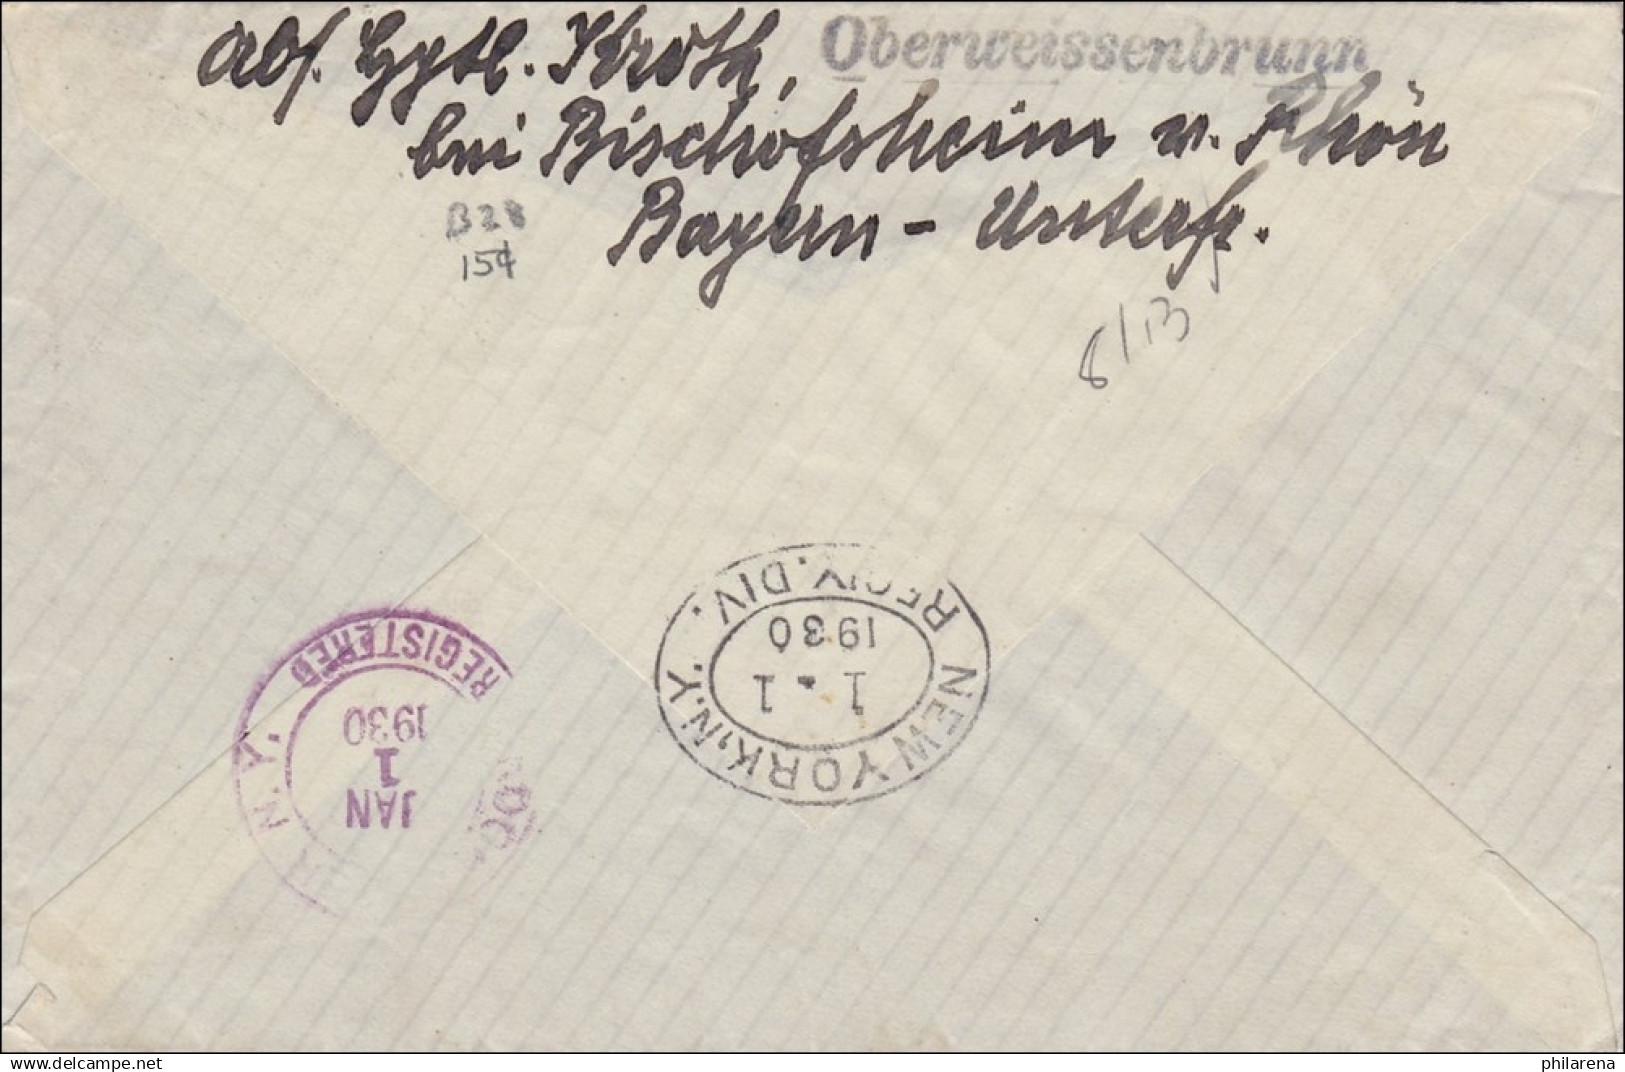 Oberweissenbrunn
Abs. Hgstl. Kroth,
bei Bischofsheim v. Rhön
Bayern - Unterfr.
B28
15¢
8/13
REC'V. DIV.
1930
1 - 1
NEW YORK, N.Y.
REGISTERED
1930
1
JAN
N.Y.
delcampe.net
philarena